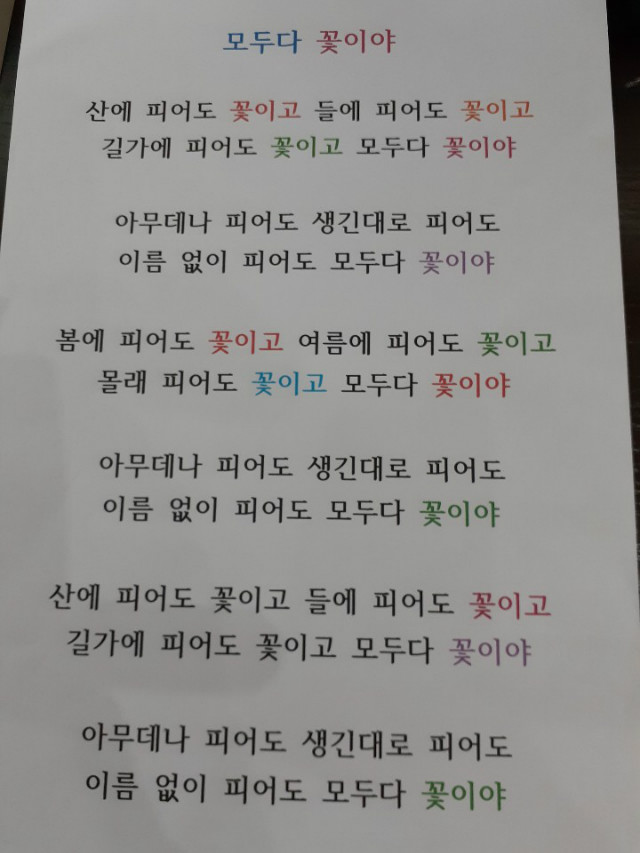 모두다 꽃이야
산에 피어도 꽃이고 들에 피어도 꽃이고
길가에 피어도 꽃이고 모두다 꽃이야
아무데나 피어도 생긴대로 피어도
이름 없이 피어도 모두다 꽃이야
봄에 피어도 꽃이고 여름에 피어도 꽃이고
몰래 피어도 꽃이고 모두다 꽃이야
아무데나 피어도 생긴대로 피어도
이름 없이 피어도 모두다 꽃이야
산에 피어도 꽃이고 들에 피어도 꽃이고
길가에 피어도 꽃이고 모두다 꽃이야
아무데나 피어도 생긴대로 피어도
이름 없이 피어도 모두다 꽃이야